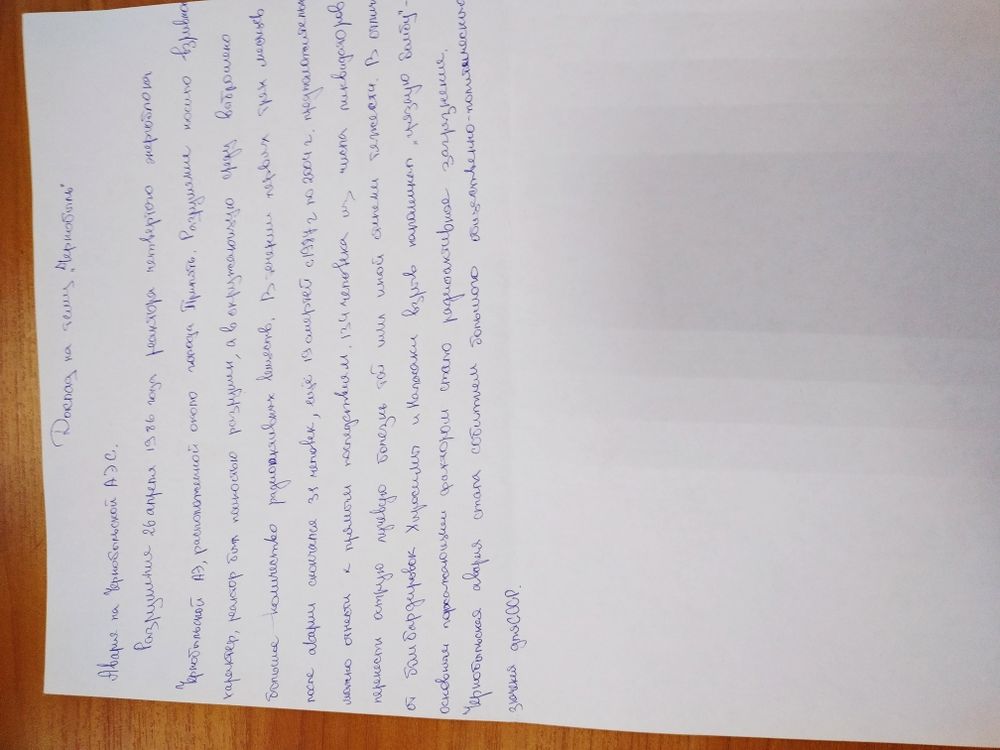 Доклад на тему „Чернобыль"
Авария на Чернобыльской АЭС.
Разрушения 26 апреля 1986 года реактора четвертого энергоблока
Чернобыльской АЭ, расположенной около города Припять. Разрушение носило
характер, реактор был полностью разрушен, а в окружающую среду выброшено
большое количество радиоактивных веществ. В течении первых трех месяцев
после аварии скончался 31 человек, ещё 19 смертей с 1987 г по 2004 г.
можно отнести к прямым последствиям. 134 человека из числа ликвидаторов
перенесли острую лучевую болезнь той или иной степени тяжести. В
от бомбардировок Хиросимы и Нагасаки взрыв напоминал „грязную бомбу"-
основным поражающим фактором стало радиоактивное загрязнение.
Чернобыльская авария стала событием большого общественно-политического
для СССР.